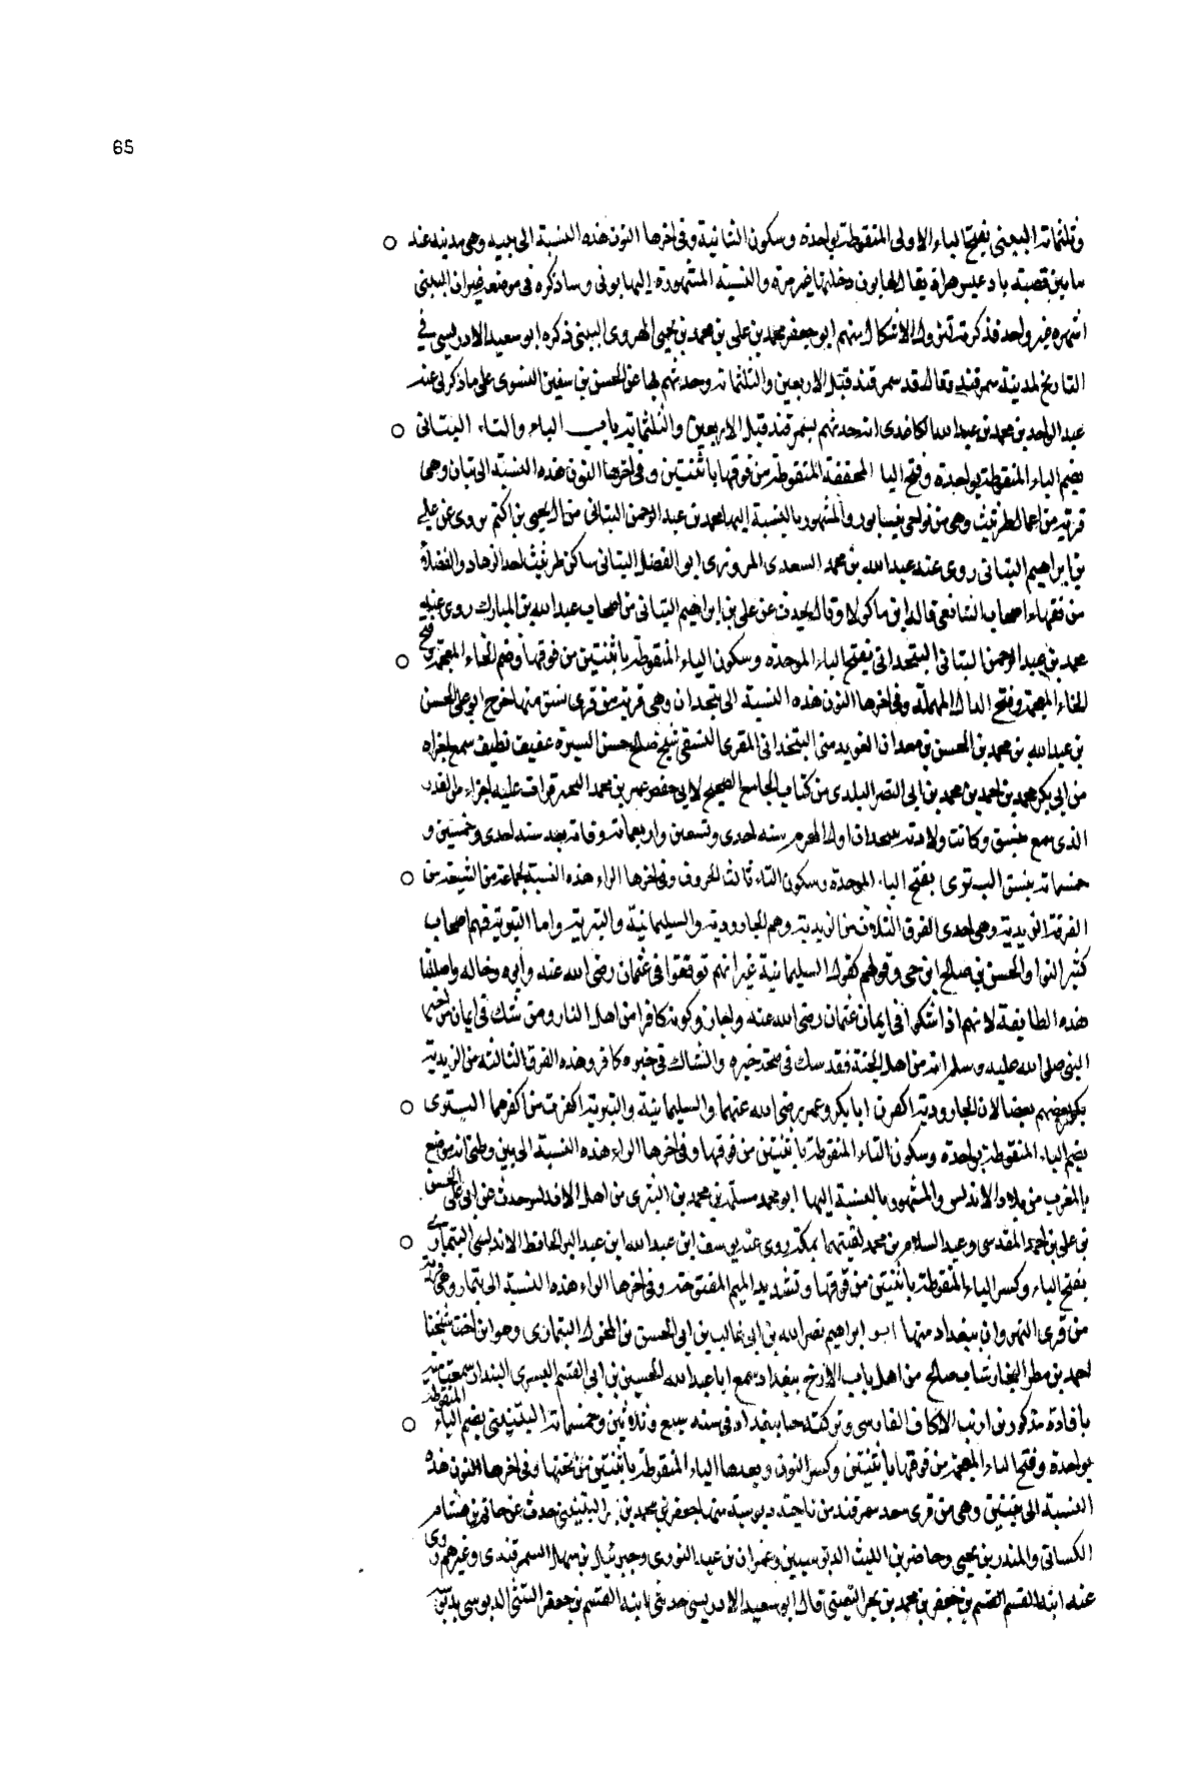 65
وثلثماية البيني بفتح الباء الاولى المنقوطة بواحدة وسكون الثانية وفي اخرها النون هذه النسبة الى ببنه وهي مدينة عند
ما بين قصبة بادغيس وهراة يقال لها بون دخلتها غير مرة والنسبة المشهورة اليها بوني وساذكره في موضعه غير ان الببني
اشهره غير واحد فذكرته لئلا الاشكال منهم ابو جعفر محمد بن علي بن محمد بن يحيى الهروي الببني ذكره ابو سعيد الادريسي في
التاريخ لمدينة سمرقند وقال قدم سمرقند قبل الاربعين والثلثماية وحدثهم بها عن الحسن بن سفين النسوي على ما ذكر لي عنه
عبد الواحد بن محمد بن عبد الله الكاغدي انه حدثهم بسمرقند قبل الاربعين والثلثماية باب الباء والتاء البتاني
بضم الباء المنقوطة بواحدة وفتح التا المخففة المنقوطة من فوقها باثنتين وفي اخرها النون هذه النسبة الى بتان وهي
قرية من اعمال طريثيث وهي من نواحي نيسابور والمشهور بالنسبة اليها محمد بن عبد الرحمن البتاني من ال يحيى بن اكثم يروي عن علي
بن ابراهيم البتاني روى عنه عبد الله بن محمد السعدي المروزي ابو الفضل البتاني ساكن طريثيث احد الزهاد والفضلاء
من فقهاء اصحاب الشافعي قاله ابن ماكولا وقال يحدث عن علي بن ابراهيم البتاني من اصحاب عبد الله بن المبارك روى عنه
محمد بن عبد الرحمن البتاني البتخداني بفتح الباء الموحدة وسكون التاء المنقوطة باثنتين من فوقها وضم الخاء المعجمة وفتح
الخاء المعجمة وفتح الدال المهملة وفي اخرها النون هذه النسبة الى بتخدان وهي قرية من قرى نسف منها خرج ابو علي الحسن
بن عبد الله بن محمد بن الحسن بن معدان الفويدمني البتخداني المقرى النسفي شيخ صالح حسن السيرة عفيف نظيف سمع اجزاء
من ابي بكر محمد بن احمد بن محمد بن ابي النصر البلدي من كتاب الجامع الصحيح لابي حفص عمر بن محمد البحير قرات عليه اجزاء من القدر
الذي سمع بنسف وكانت ولادته ببتخدان اول المحرم سنة احدى وتسعين واربعماية وفاته بعد سنة احدى وخمسين و
خمسماية بنسف البتري بفتح الباء الموحدة وسكون التاء ثالث الحروف وفي اخرها الراء هذه النسبة لجماعة من الشيعة من
الفرقة الزيدية وهي احدى الفرق الثلاث من الزيدية وهم الجارودية والسليمانية والبترية واما البترية فهم اصحاب
كثير النوا والحسن بن صالح ابن حي وقولهم كقول السليمانية غير انهم توقفوا في عثمان رضي الله عنه وابوه وخاله واصلفا
هذه الطايفة لانهم اذا شكوا في ايمان عثمان رضي الله عنه واجازوا كونه كافرا من اهل النار ومن شك في ايمان من اخبر
النبي صلى الله عليه وسلم انه من اهل الجنة فقد شك في صحة خبره والشاك في خبره كافر وهذه الفرق الثالثة من الزيدية
يكفر بعضهم بعضا لان الجارودية اكفرت ابا بكر وعمر رضي الله عنهما والسليمانية والبترية اكفرت من اكفرهما البتري
بضم الباء المنقوطة بواحدة وسكون التاء المنقوطة باثنتين من فوقها وفي اخرها الراء هذه النسبة الى بتر وظني انه موضع
بالمغرب من بلاد الاندلس والمشهور بالنسبة اليها ابو محمد مسلمة بن محمد بن البتري من اهل الاندلس حدث عن ابي علي الحسن
بن علي بن احمد المقدسي وعبد السلام بن محمد لقيتهما بمكة روى عنه يوسف ابن عبد الله ابن عبد البر الحافظ الاندلسي البتماري
بفتح الباء وكسر التاء المنقوطة باثنتين من فوقها وتشديد الميم المفتوحة وفي اخرها الراء هذه النسبة الى بتمار وهي قرية
من قرى النهروان ببغداد منها ابو ابراهيم نصر الله بن ابي غالب بن ابي الحسن بن البتماري وهو ابن اخت شيخنا
احمد بن مطر النجار شاب صالح من اهل باب الازج ببغداد سمع ابا عبد الله الحسين بن ابي القسم البسري البندار سمعت منه
بافادة مذكور بن ارنب الاكاف الفارسي وتركته حيا ببغداد في سنة سبع وثلاثين وخمسماية البتنيني بضم الباء المنقوطة
بواحدة وفتح التاء المعجمة من فوقها باثنتين وكسر النون وبعدها الياء المنقوطة باثنتين من تحتها وفي اخرها النون هذه
النسبة الى بتنين وهي من قرى سغد سمرقند من ناحية دبوسية منها جعفر بن محمد بن بحر البتنيني حدث عن حاتم بن هشام
الكساني والمنذر بن يحيى وحاضر بن الليث الدبوسيين وعمران بن عبد النوري وجبرئيل بن سهل السمرقندي وغيرهم روى
عنه ابنه القسم القسم بن جعفر بن محمد بن بحر البتنيني قال ابو سعيد الادريسي حدثني ابنه القسم بن جعفر البتنيني الدبوسي